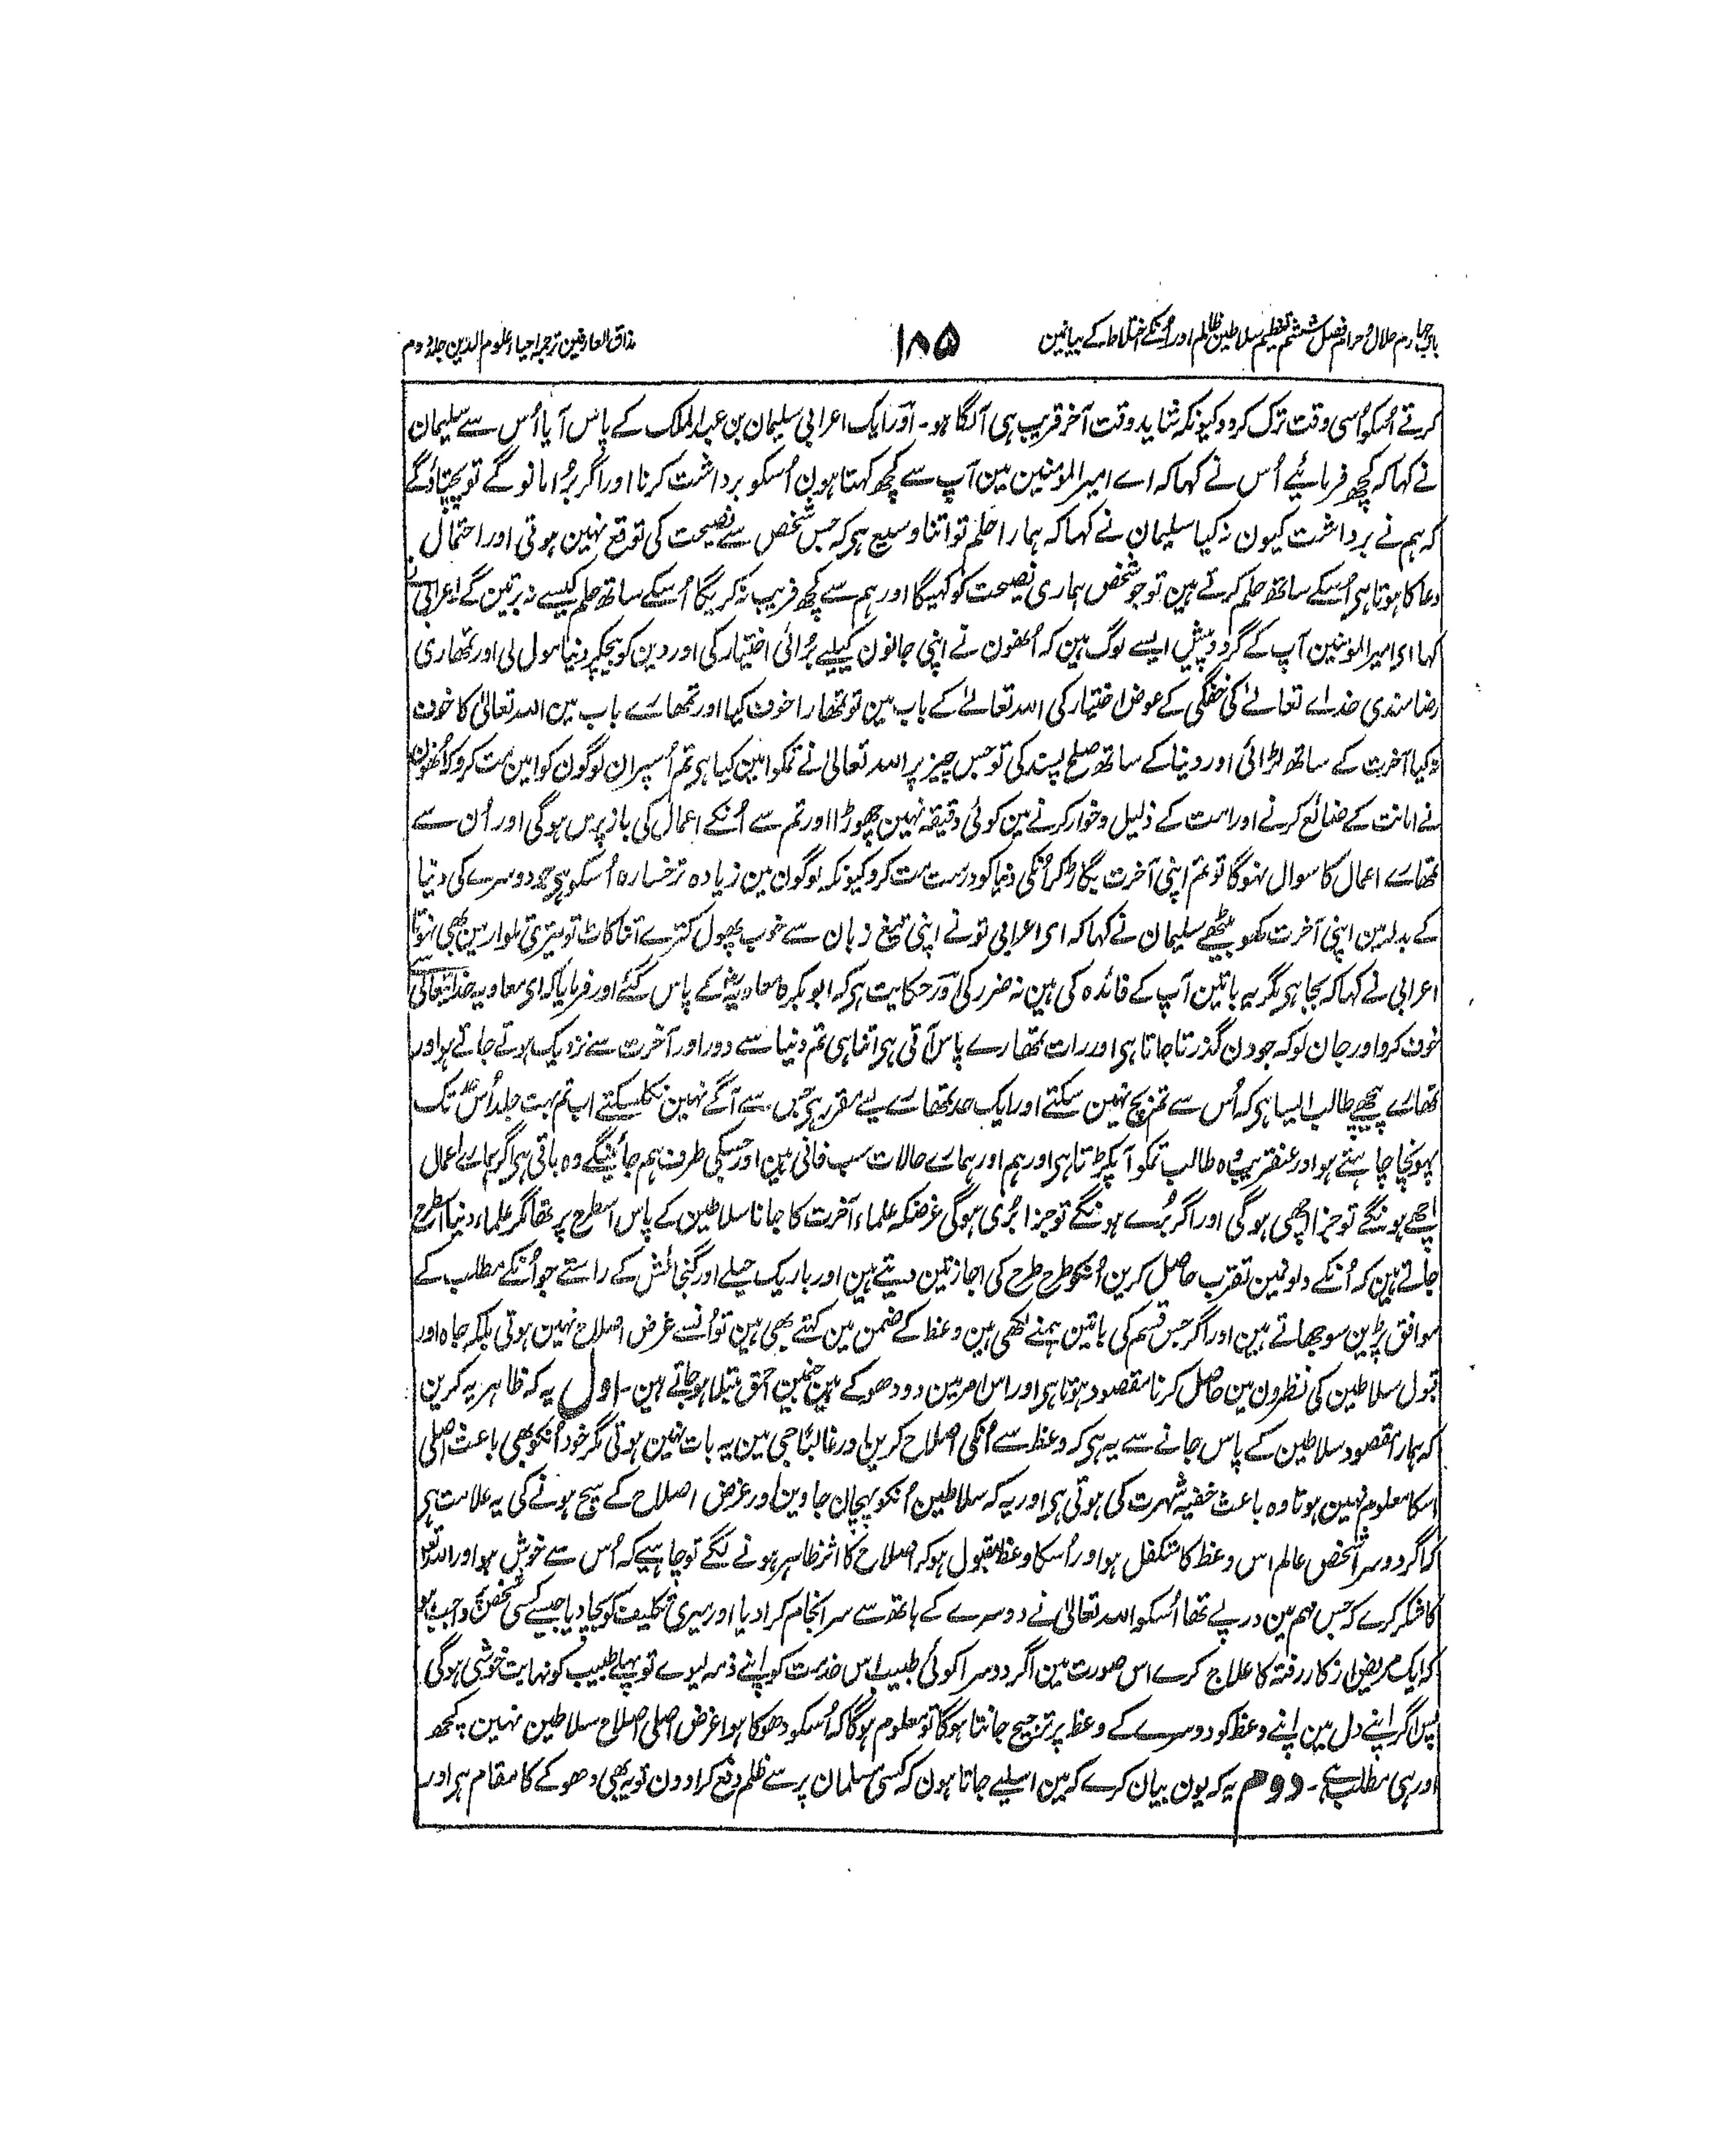 باب چہارم حلال و حرام فصل ششم تعظیم سلاطین ظالم اور اُنکے اختلاط کے بیانمین
۱۸۵
مذاق العارفین ترجمہ احیاء علوم الدین جلد دوم
کرتے اُسکو اُسی وقت ترک کر دو کیونکہ شاید وقت آخر قریب ہی آ لگا ہو۔ اور ایک اعرابی سلیمان بن عبد الملک کے پاس آیا اُس سے سلیمان
نے کہا کہ کچھ فرمائیے اُس نے کہا کہ اے امیر المومنین مین آپ سے کچھ کہتا ہون اُسکو برداشت کرنا اور اگر بُرا مانو گے تو پچتاؤ گے
کہ ہم نے برداشت کیون نہ کیا سلیمان نے کہا کہ ہمارا حلم تو اتنا وسیع ہی کہ جس شخص سے نصیحت کی توقع نہین ہوتی اور احتمال
دعا کا ہوتا ہی اُسکے ساتھ حلم کرتے ہین تو جو شخص ہماری نصیحت کو کہیگا اور ہم سے کچھ فریب نہ کریگا اُسکے ساتھ حلم کیسے نہ برتین گے اعرابی نے
کہا ای امیر المومنین آپ کے گرد و پیش ایسے لوگ ہین کہ اُنھون نے اپنی جانون کیلیے بُرائی اختیار کی اور دین کو بیچکر دنیا مول لی اور تمھاری
رضا مندی خداے تعالےٰ کی خفگی کے عوض اختیار کی اللہ تعالےٰ کے باب مین تو تمھارا خوف کیا اور تمھاے باب مین اللہ تعالیٰ کا خوف
نہ کیا آخرت کے ساتھ لڑائی اور دنیا کے ساتھ صلح پسند کی تو جس چیز پر اللہ تعالیٰ نے تمکو امین کیا ہی تم اُسپر ان لوگون کو امین مت کرو کہ اُنھون
نے امانت کے ضائع کرنے اور امت کے ذلیل و خوار کرنے مین کوئی دقیقہ نہین چھوڑا اور تم سے اُنکے اعمال کی باز پرس ہوگی اور اُن سے
تمھاے اعمال کا سوال نہوگا تو تم اپنی آخرت بگاڑ کر اُنکی دنیا کو درست مت کرو کیونکہ لوگون مین زیادہ تر خسارہ اُسکو ہی جو دوسرے کی دنیا
کے بدلہ مین اپنی آخرت کھو بیٹھے سلیمان نے کہا کہ ای اعرابی تو نے اپنی تیغ زبان سے خوب پھول کترے اتنا کاٹ تو تیری تلوار مین بھی نہوتا
اعرابی نے کہا کہ بجا ہی مگر یہ باتین آپ کے فائدہ کی ہین نہ ضرر کی اور حکایت ہی کہ ابو بکرہ معاویہؓ کے پاس گئے اور فرمایا کہ ای معاویہ خدایتعالیٰ سے
خوف کرو اور جان لو کہ جو دن گذرتا جاتا ہی اور رات تمھارے پاس آتی ہی اتنا ہی تم دنیا سے دور اور آخرت سے نزدیک ہوتے جاتے ہو اور
تمھاے پیچھے طالب ایسا ہی کہ اُس سے تم بچ نہین سکتے اور ایک حد تمھاے لیے مقرر ہی جس سے آگے نہین نکل سکتے اب تم بہت جلد اُس حد تک
پہونچا چاہتے ہو اور عنقریب وہ طالب تمکو آ پکڑتا ہی اور ہم اور ہماے حالات سب فانی ہین اور جسکی طرف ہم جائینگے وہ باقی ہی اگر ہماے اعمال
اچھے ہونگے تو جزا اچھی ہوگی اور اگر بُرے ہونگے تو جزا بُری ہوگی غرضکہ علماء آخرت کا جانا سلاطین کے پاس اسطرح پر تھا مگر علماء دنیا اسطرح
جاتے ہین کہ اُنکے دلونمین تقرب حاصل کرین اُنکو طرح طرح کی اجازتین دیتے ہین اور باریک حیلے اور گنجائش کے راستے جو اُنکے مطلب کے
موافق پڑین سوجھاتے ہین اور اگر جس قسم کی باتین ہمنے لکھی ہین وعظ کے ضمن مین کہتے بھی ہین تو اُنسے غرض اصلاح نہین ہوتی بلکہ جاہ اور
قبول سلاطین کی نظرون مین حاصل کرنا مقصود ہوتا ہی اور اس امر مین دو دھوکے ہین جنمین احمق مبتلا ہو جاتے ہین۔ اول یہ کہ ظاہر یہ کرین
کہ ہمارا مقصود سلاطین کے پاس جانے سے یہ ہی کہ وعظ سے اُنکی اصلاح کرین اور غالباً جی مین یہ بات نہین ہوتی مگر خود اُنکو بھی باعث اصلی
اسکا معلوم نہین ہوتا وہ باعث خفیہ شہرت کی ہوتی ہی اور یہ کہ سلاطین اُنکو پہچان جاوین اور غرض اصلاح کے سچ ہونے کی یہ علامت ہی
کہ اگر دوسرا شخص عالم اس وعظ کا متکفل ہو اور اُسکا وعظ مقبول ہو کہ اصلاح کا اثر ظاہر ہونے لگے تو چاہیے کہ اُس سے خوش ہو اور اللہ تعا
کا شکر کرے کہ جس مہم مین درپے تھا اُسکو اللہ تعالیٰ نے دوسرے کے ہاتھ سے سرانجام کرا دیا اور میری تکلیف کو بچا دیا جیسے کسی شخص پر واجب ہو
کہ ایک مریض از کار رفتہ کا علاج کرے اس صورت مین اگر دوسرا کوئی طبیب اس خدمت کو اپنے ذمہ لیوے تو پہلے طبیب کو نہایت خوشی ہوگی
پس اگر اپنے دل مین اپنے وعظ کو دوسرے کے وعظ پر ترجیح جانتا ہوگا تو معلوم ہوگا کہ اُسکو دھوکا ہوا غرض اصلی اصلاح سلاطین نہین کچھ
اور ہی مطلب ہی۔ دوم یہ کہ یون بیان کرے کہ مین اسلیے جاتا ہون کہ کسی مسلمان پر سے ظلم دفع کرا دون تو یہ بھی دھوکے کا مقام ہی اور